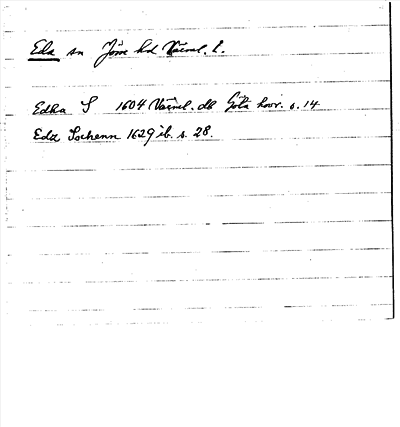 Eda sn Jösse hd Värml. l.
Edha S 1604 Värml. dl Göta hovr. s. 14
Eda Sochenn 1629 ib. s. 28.